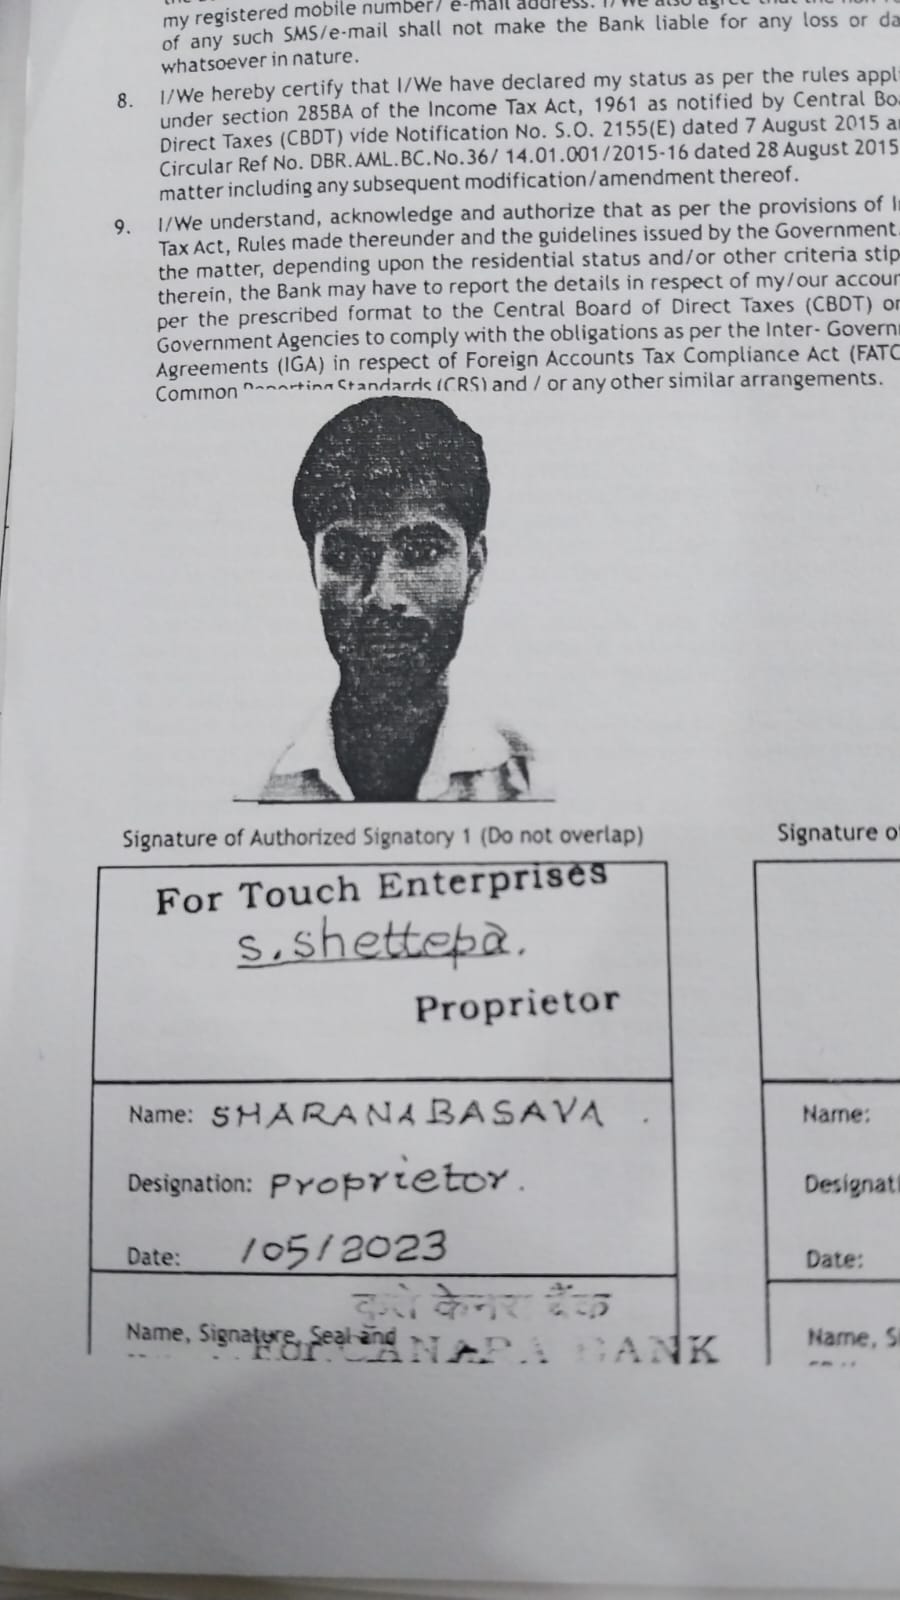 my registered mobile number/ e-mail address. I/We also agree that the non-re
of any such SMS/e-mail shall not make the Bank liable for any loss or da
whatsoever in nature.
8. I/We hereby certify that I/We have declared my status as per the rules appli
under section 285BA of the Income Tax Act, 1961 as notified by Central Boa
Direct Taxes (CBDT) vide Notification No. S.O. 2155(E) dated 7 August 2015 a
Circular Ref No. DBR.AML.BC.No.36/ 14.01.001/2015-16 dated 28 August 2015
matter including any subsequent modification/amendment thereof.
9. I/We understand, acknowledge and authorize that as per the provisions of I
Tax Act, Rules made thereunder and the guidelines issued by the Government
the matter, depending upon the residential status and/or other criteria stip
therein, the Bank may have to report the details in respect of my/our accour
per the prescribed format to the Central Board of Direct Taxes (CBDT) or
Government Agencies to comply with the obligations as per the Inter- Govern
Agreements (IGA) in respect of Foreign Accounts Tax Compliance Act (FATC
Common Reporting Standards (CRS) and / or any other similar arrangements.
Signature of Authorized Signatory 1 (Do not overlap)
Signature o
For Touch Enterprises
s.shettepa.
Proprietor
Name: SHARANABASAVA
Designation: Proprietor.
Date: /05/2023
Name:
Designati
Date:
केनरा बैंक
Name, Signature, Seal and
For CANARA BANK
Name, S